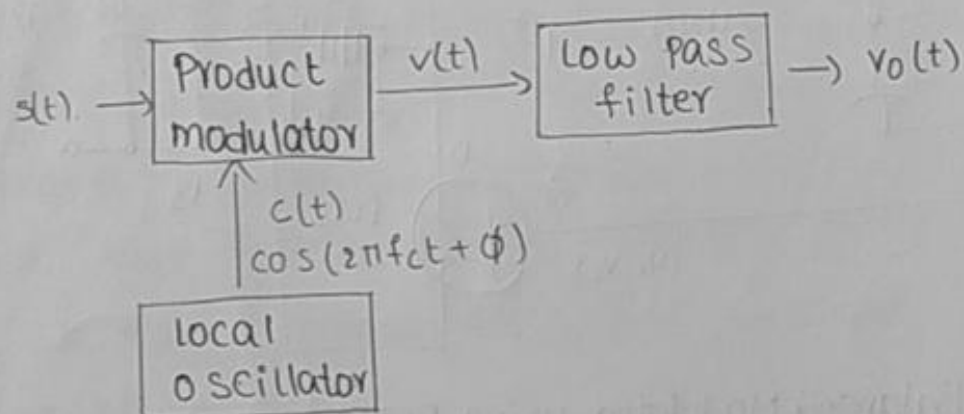 s(t)
Product
modulator
v(t)
Low pass
filter
v₀(t)
c(t)
cos(2πfct + ϕ)
local
oscillator